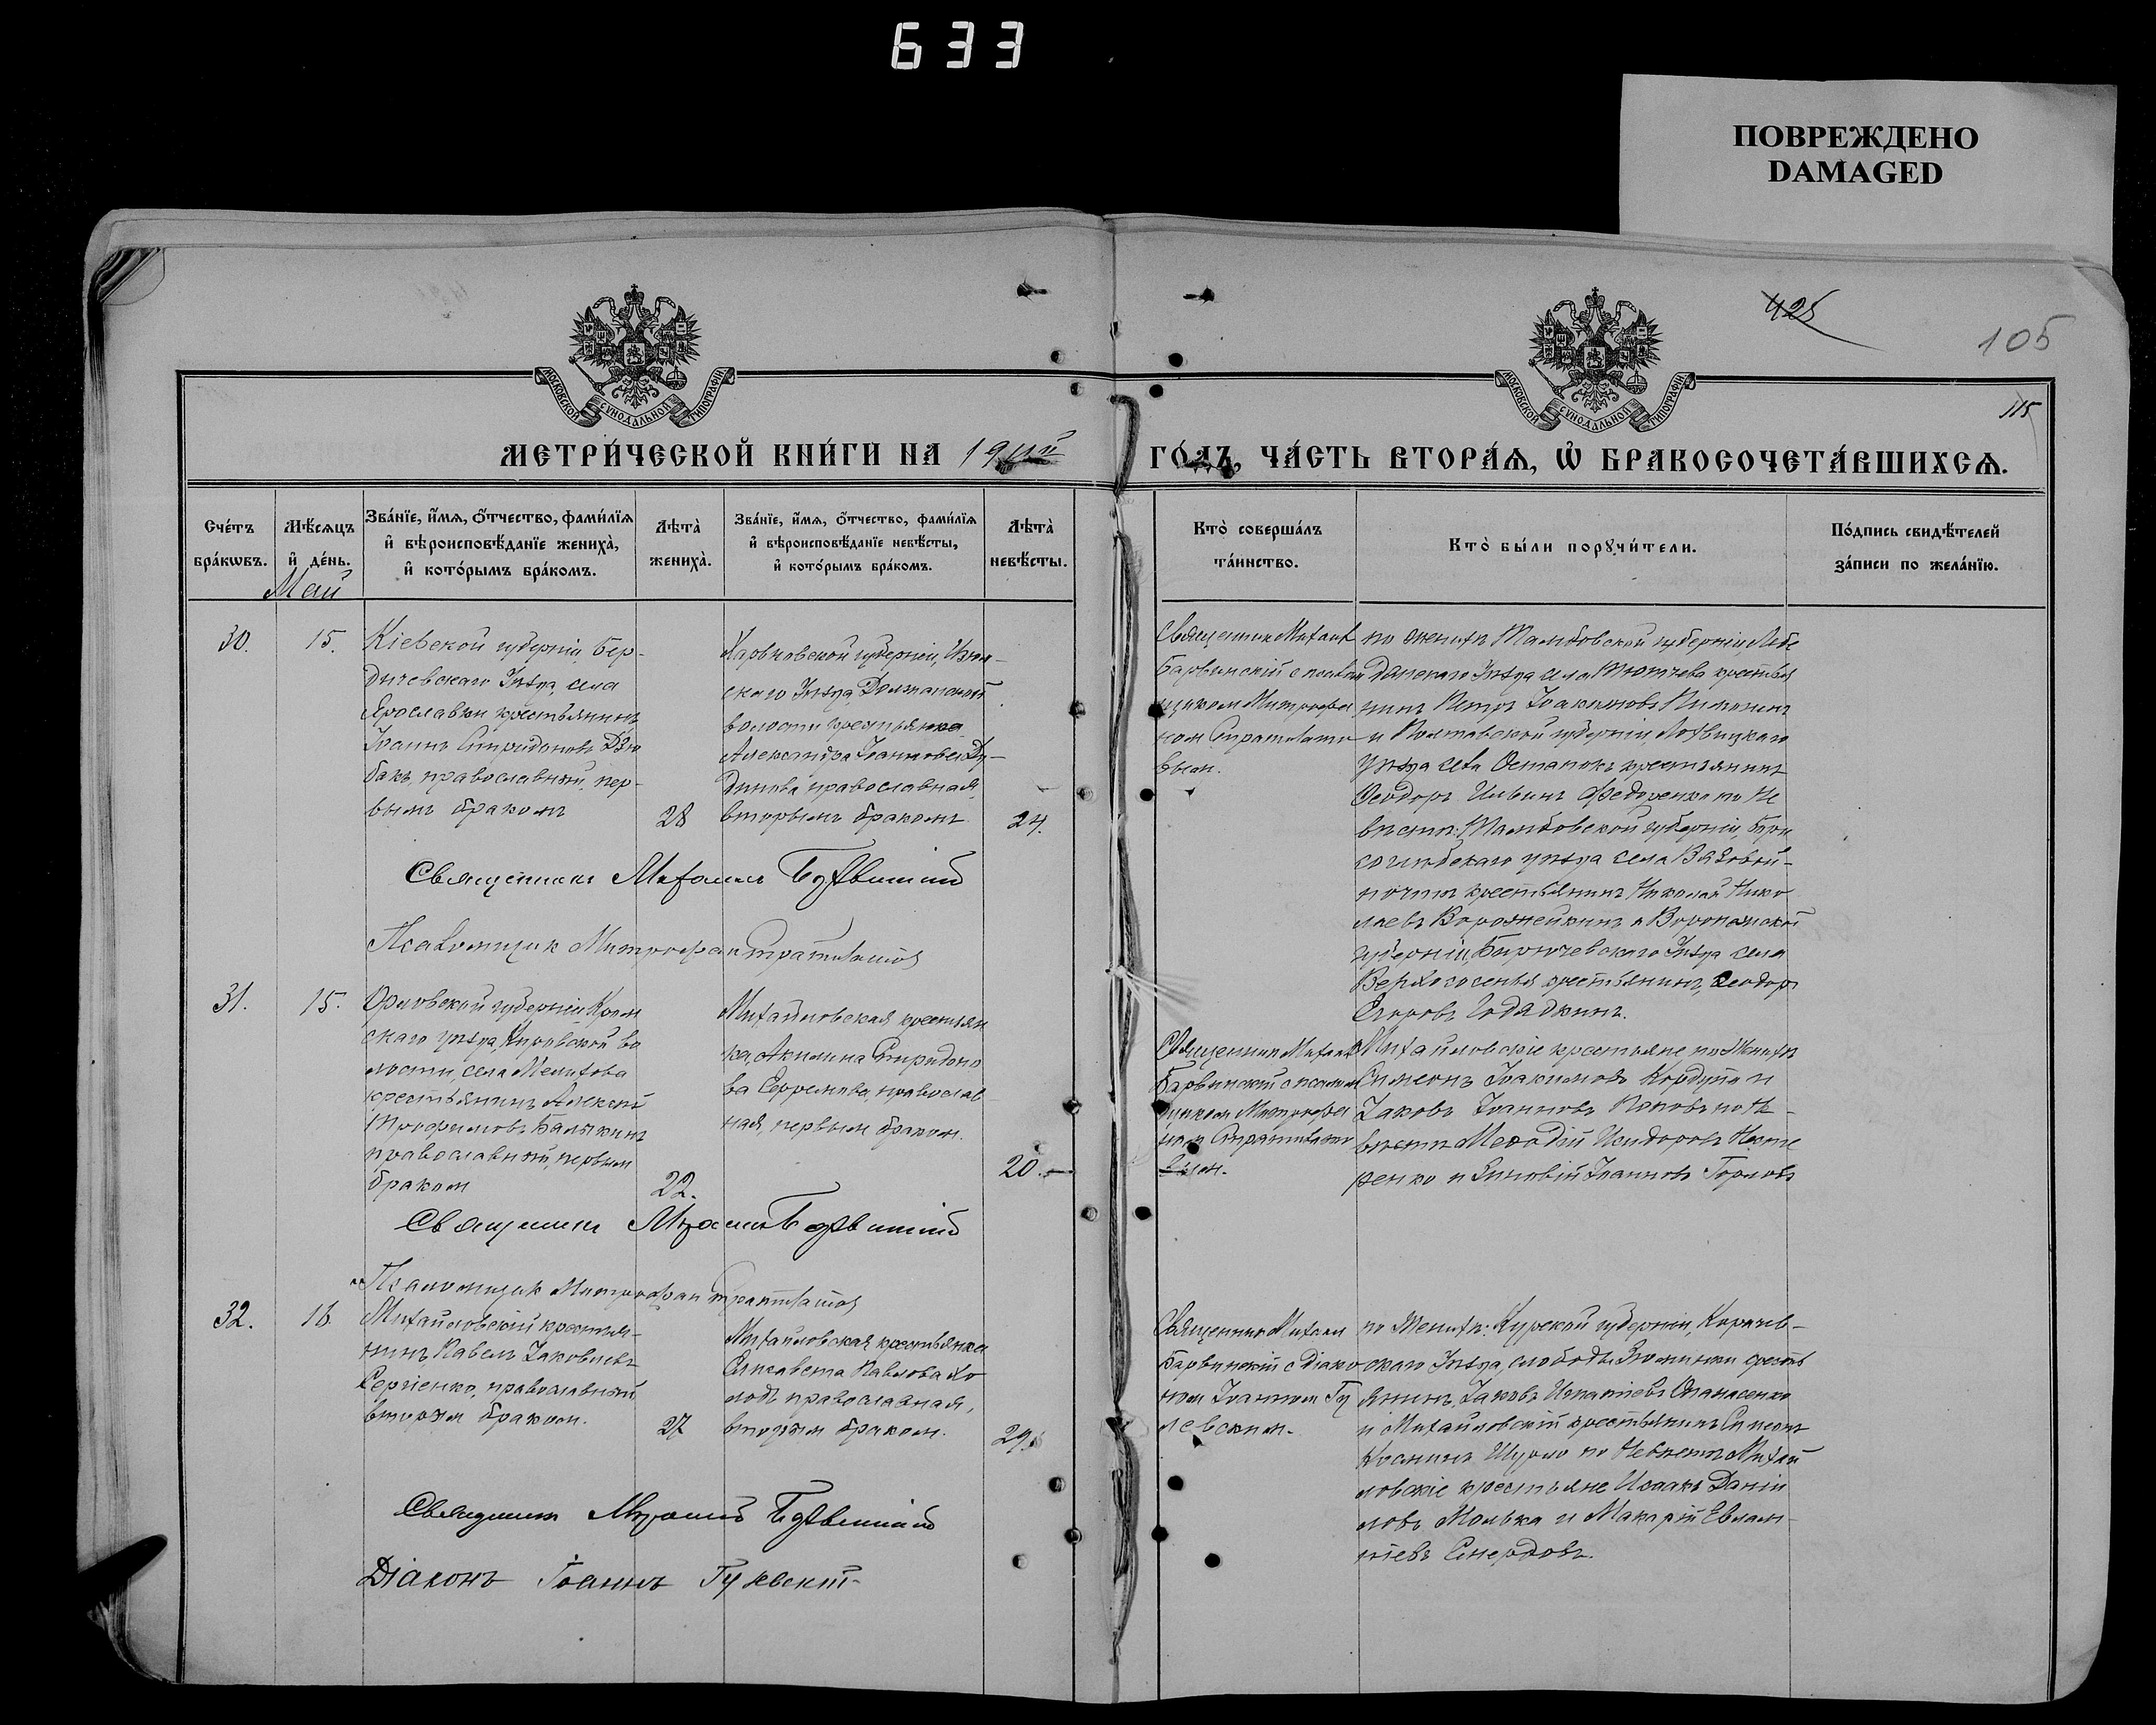 633
ПОВРЕЖДЕНО
DAMAGED
425
105
115
МОСКОВСКОЙ СѴНОДАЛЬНОЙ ТИПОГРАФІИ
МОСКОВСКОЙ СѴНОДАЛЬНОЙ ТИПОГРАФІИ
МЕТРИ́ЧЕСКОЙ КНИ́ГИ НА 19
ГО́ДЪ, ЧА́СТЬ ВТОРА́Ѧ, Ѡ҆ БРАКОСОЧЕТА́ВШИХСѦ.
Сче́тъ
бра́кѡвъ.
Мѣ́сѧцъ
и҆ де́нь.
Зва́нїе, и҆́мѧ, ѻ҆́тчество, фами́лїѧ
и҆ вѣроисповѣ́данїе жениха̀,
и҆ кото́рымъ бра́комъ.
Лѣта̀
жениха̀.
Зва́нїе, и҆́мѧ, ѻ҆́тчество, фами́лїѧ
и҆ вѣроисповѣ́данїе невѣ́сты,
и҆ кото́рымъ бра́комъ.
Лѣта̀
невѣ́сты.
Кто̀ соверша́лъ
та́инство.
Кто̀ бы́ли порꙋчи́тели.
По́дпись свидѣ́телей
за́писи по жела́нїю.
Май
30.
15.
Кіевской губерніи, Бер-
дичевскаго Уѣзда, села
Ярославки крестьянинъ
Іоаннъ Спиридоновъ Дзю
бакъ, православный, пер-
вымъ бракомъ
28
Харьковской губерніи, Изюм-
скаго Уѣзда,
волости крестьянка
Александра Іоаннова Ду-
динова православная
вторымъ бракомъ
24.
Священникъ Михаилъ
Барвинскій с псалом
щикомъ Митрофа
ном Стратилато
вым.
по женихѣ Тамбовской губерніи, Лебе
дянскаго Уѣзда села Тютчева крестья
нинъ Петръ Іоакимовъ
и Полтавской губерніи, Лохвицкаго
уѣзда села Остаповъ крестьянинъ
Ѳеодоръ Ильинъ Федоренко по не
вѣстѣ: Тамбовской губерніи, Бори
соглебскаго уѣзда села Вязовой-
почты крестьянинъ Николай Нико
лаевъ Ворожейкинъ и Воронежской
губерніи, Бирюченскаго Уѣзда села
Верхососенья крестьянинъ, Ѳеодоръ
Егоровъ
Священникъ Михаилъ
Псаломщик Митрофан Стратилатов
31.
15.
Орловской губерніи Кром
скаго уѣзда, во
лости, села Мелихова
крестьянинъ Алексѣй
Трофимовъ Балыкинъ
православный, первым
браком
22.
Михайловская крестьян
ка, Акилина Спиридоно
ва Ефремова, православ
ная, первым браком.
20.
Священникъ Михаилъ
Барвинскій с псалом
щиком Митрофа
ном Стратилато
вым.
Михайловскіе крестьяне по женихѣ
Симеонъ Іоакимовъ и
Іаковъ Іоанновъ Поповъ по не-
вѣстѣ Меѳодій Исидоровъ Несте
ренко и Зиновій Іоанновъ Горловъ
Священникъ
Псаломщик Митрофан Стратилатов
32.
16.
Михайловскій крестья-
нинъ, Павелъ Іаковлевъ
Сергіенко, православный
вторым браком.
27
Михайловская крестьянка
Елисавета Павлова Хо
лодъ православная,
вторым браком.
29.
Священникъ Михаил
Барвинскій с діако
ном Іоанном Гу
левским.
по женихѣ: Курской губерніи,
скаго Уѣзда, слободы кресть
янинъ, Іаковъ Игнатіевъ Опанасенко
и Михайловскій крестьянинъ Симеонъ
Косминъ по невѣстѣ Михай
ловскіе крестьяне Исаакъ Даніи
ловъ и Макарій Евлам-
піевъ Смердовъ.
Священникъ
Діаконъ Іоаннъ Гулевскій